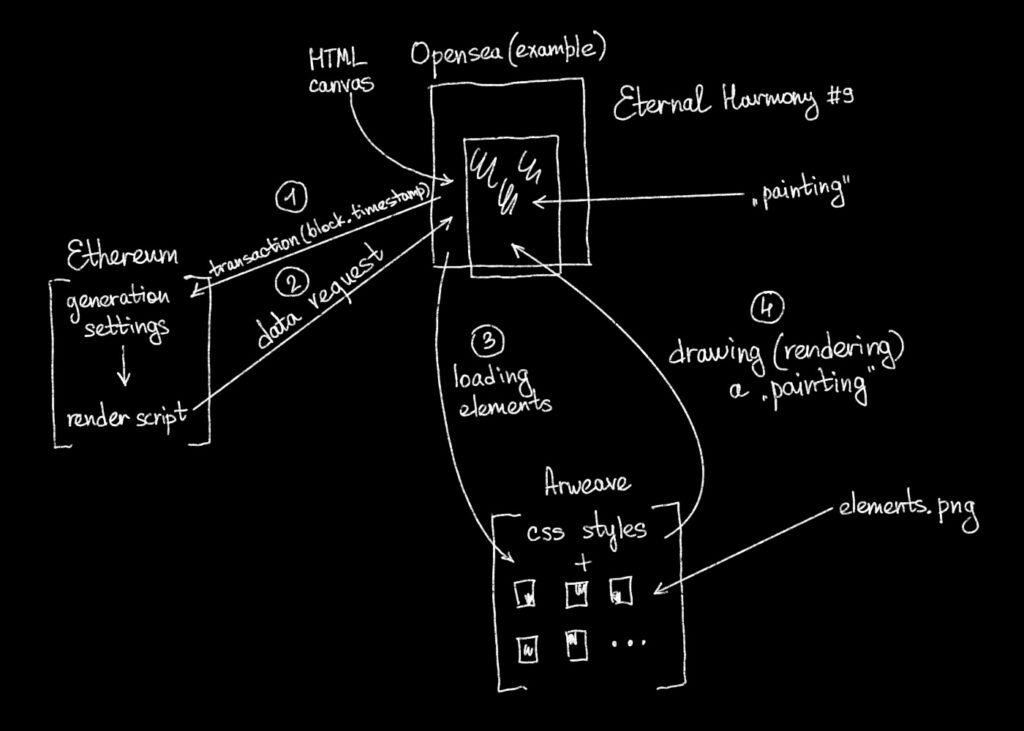 HTML
canvas
Opensea (example)
Eternal Harmony #9
1
transaction (block.timestamp)
„painting"
Ethereum
generation
settings
render script
2
data request
3
loading
elements
4
drawing (rendering)
a „painting"
Arweave
css styles
+
elements.png
...